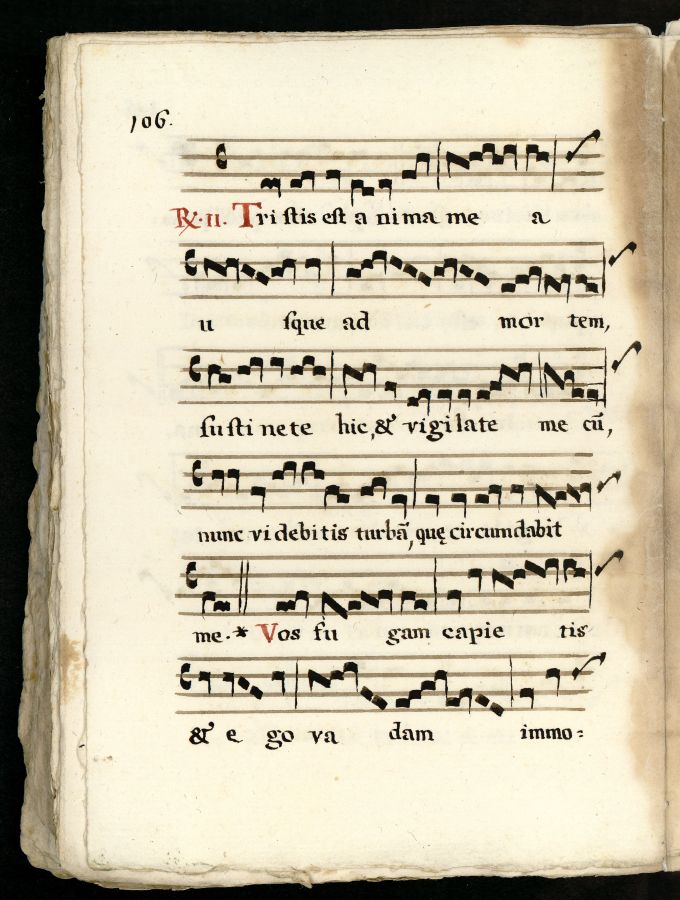 106.
℟. II. Tri stis est a ni ma me a
u sque ad mor tem,
susti nete hic, & vigilate me cū,
nunc vi debitis turbā, quę circumdabit
me. * Vos fu gam capie tis
& e go va dam immo=